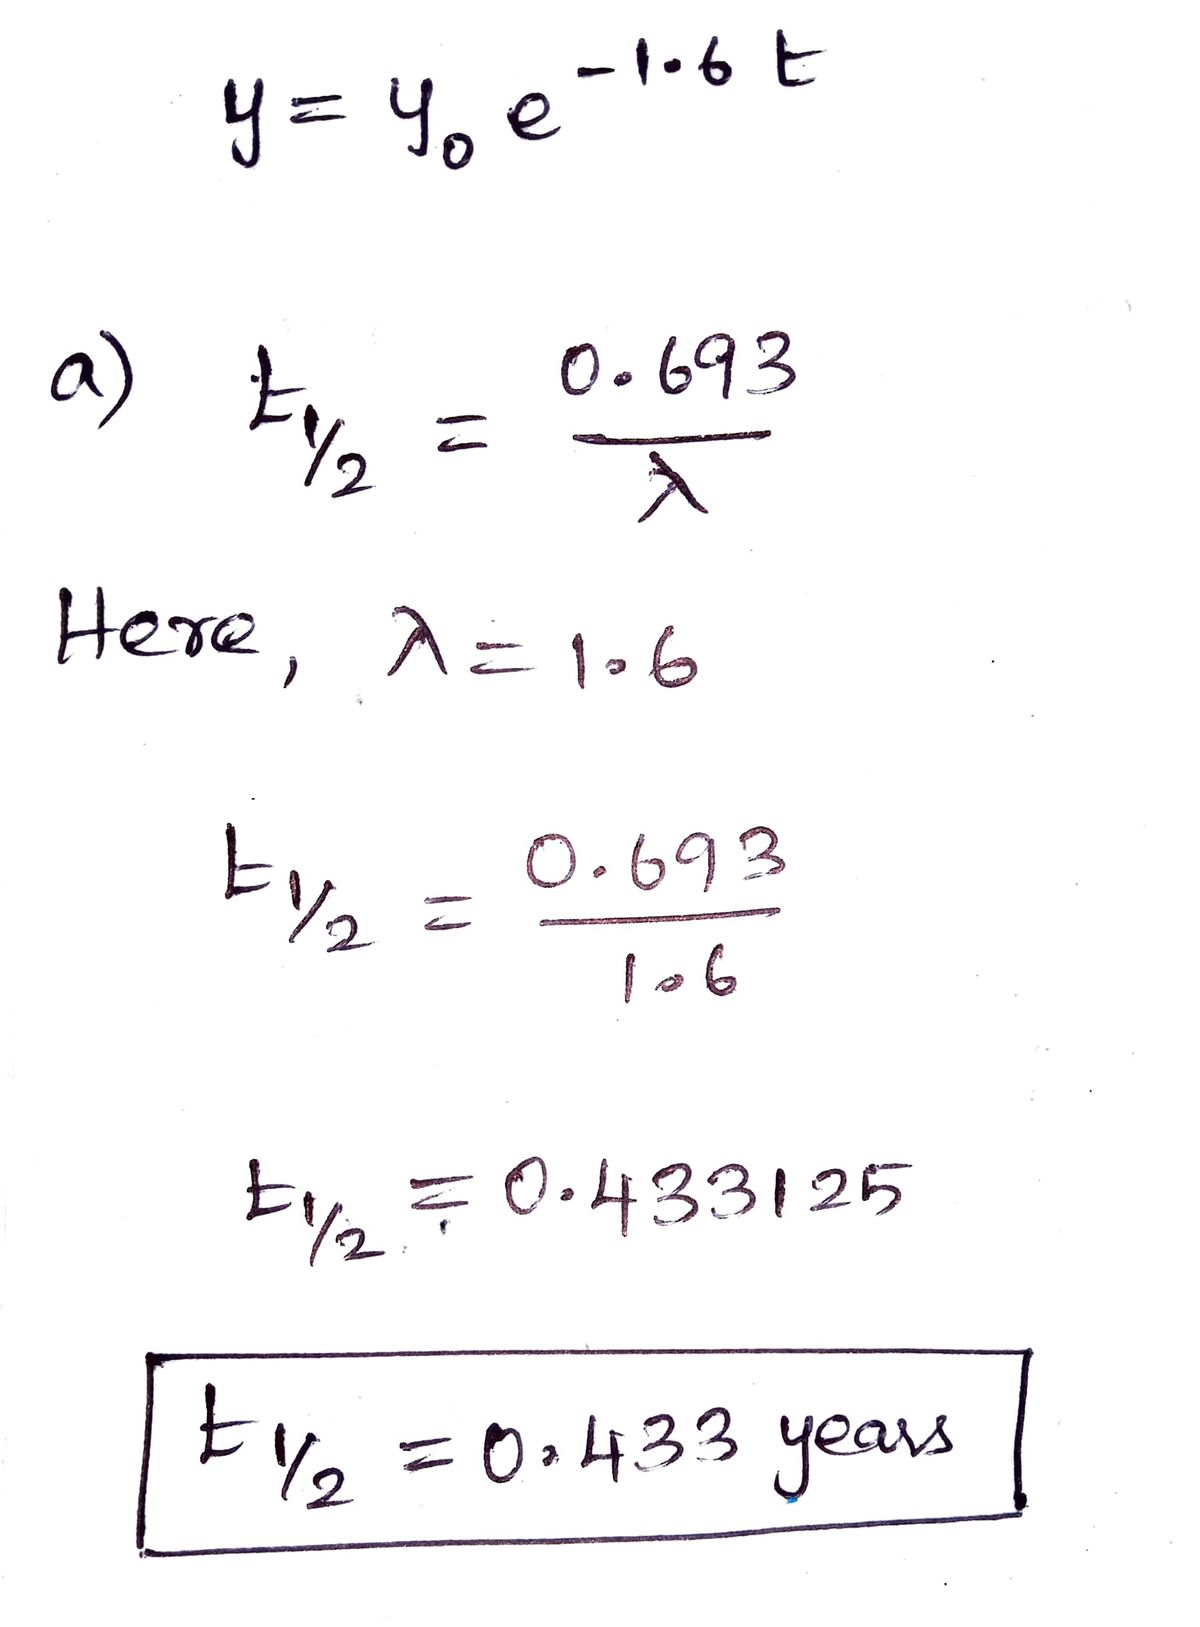 y = y₀ e^{-1.6 t}
a) t_{1/2} = 0.693 / λ
Here, λ = 1.6
t_{1/2} = 0.693 / 1.6
t_{1/2} = 0.433125
t_{1/2} = 0.433 years